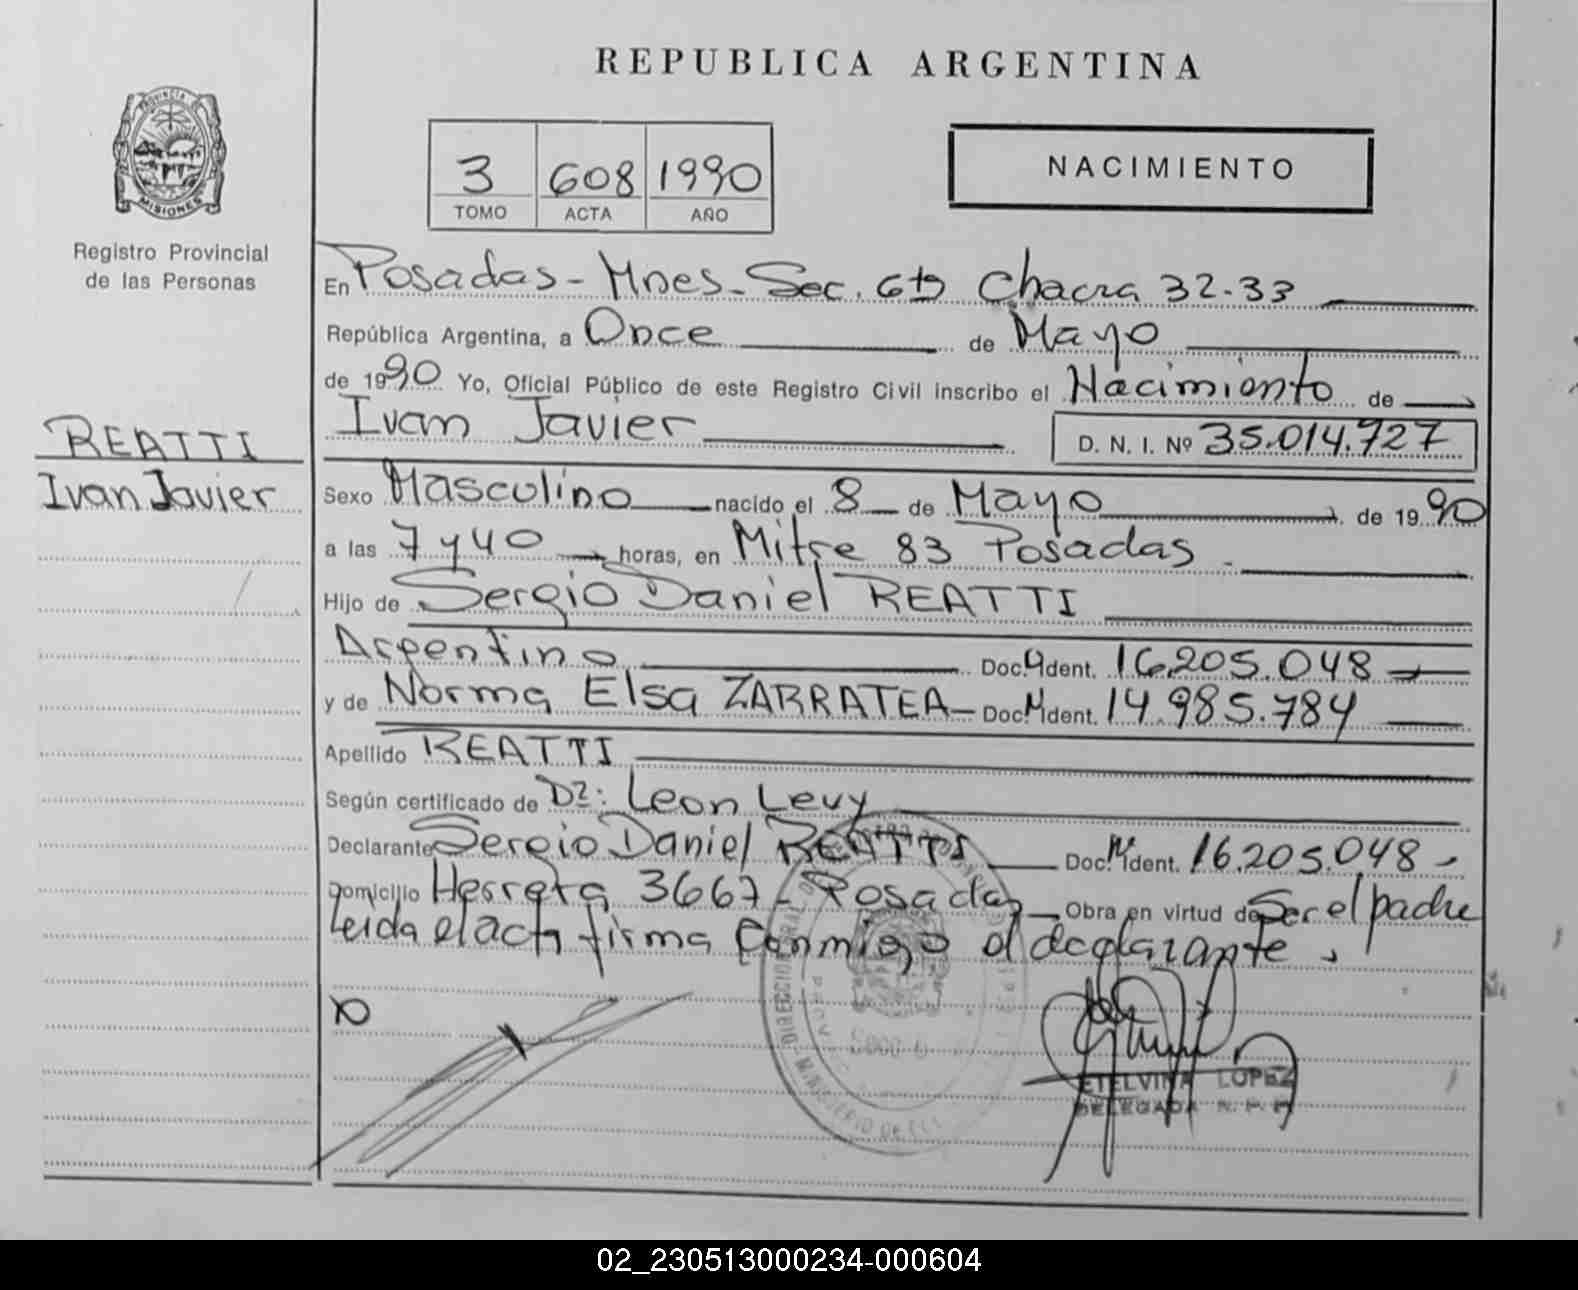 REPUBLICA ARGENTINA
PROVINCIA DE
MISIONES
Registro Provincial
de las Personas
3 608 1990
TOMO ACTA AÑO
NACIMIENTO
En Posadas - Mnes - Sec. 6ta Chacra 32-33
República Argentina, a Once de Mayo
de 1990 Yo, Oficial Público de este Registro Civil inscribo el Nacimiento de
Ivan Javier D. N. I. Nº 35.014.727
REATTI
Ivan Javier
Sexo Masculino nacido el 8 de Mayo de 1990
a las 7 y 40 horas, en Mitre 83 Posadas
Hijo de Sergio Daniel REATTI
Argentino Doc. Ident. 16.205.048
y de Norma Elsa ZARRATEA - Doc. Ident. 14.985.784
Apellido REATTI
Según certificado de Dr: Leon Levy
Declarante Sergio Daniel REATTI Doc. Ident. 16.205.048 -
Domicilio Herrera 3667 - Posadas Obra en virtud de Ser el padre
Leida el acta firma conmigo el declarante.
ETELVINA LOPEZ
DELEGADA R. P. P.
02_230513000234-000604